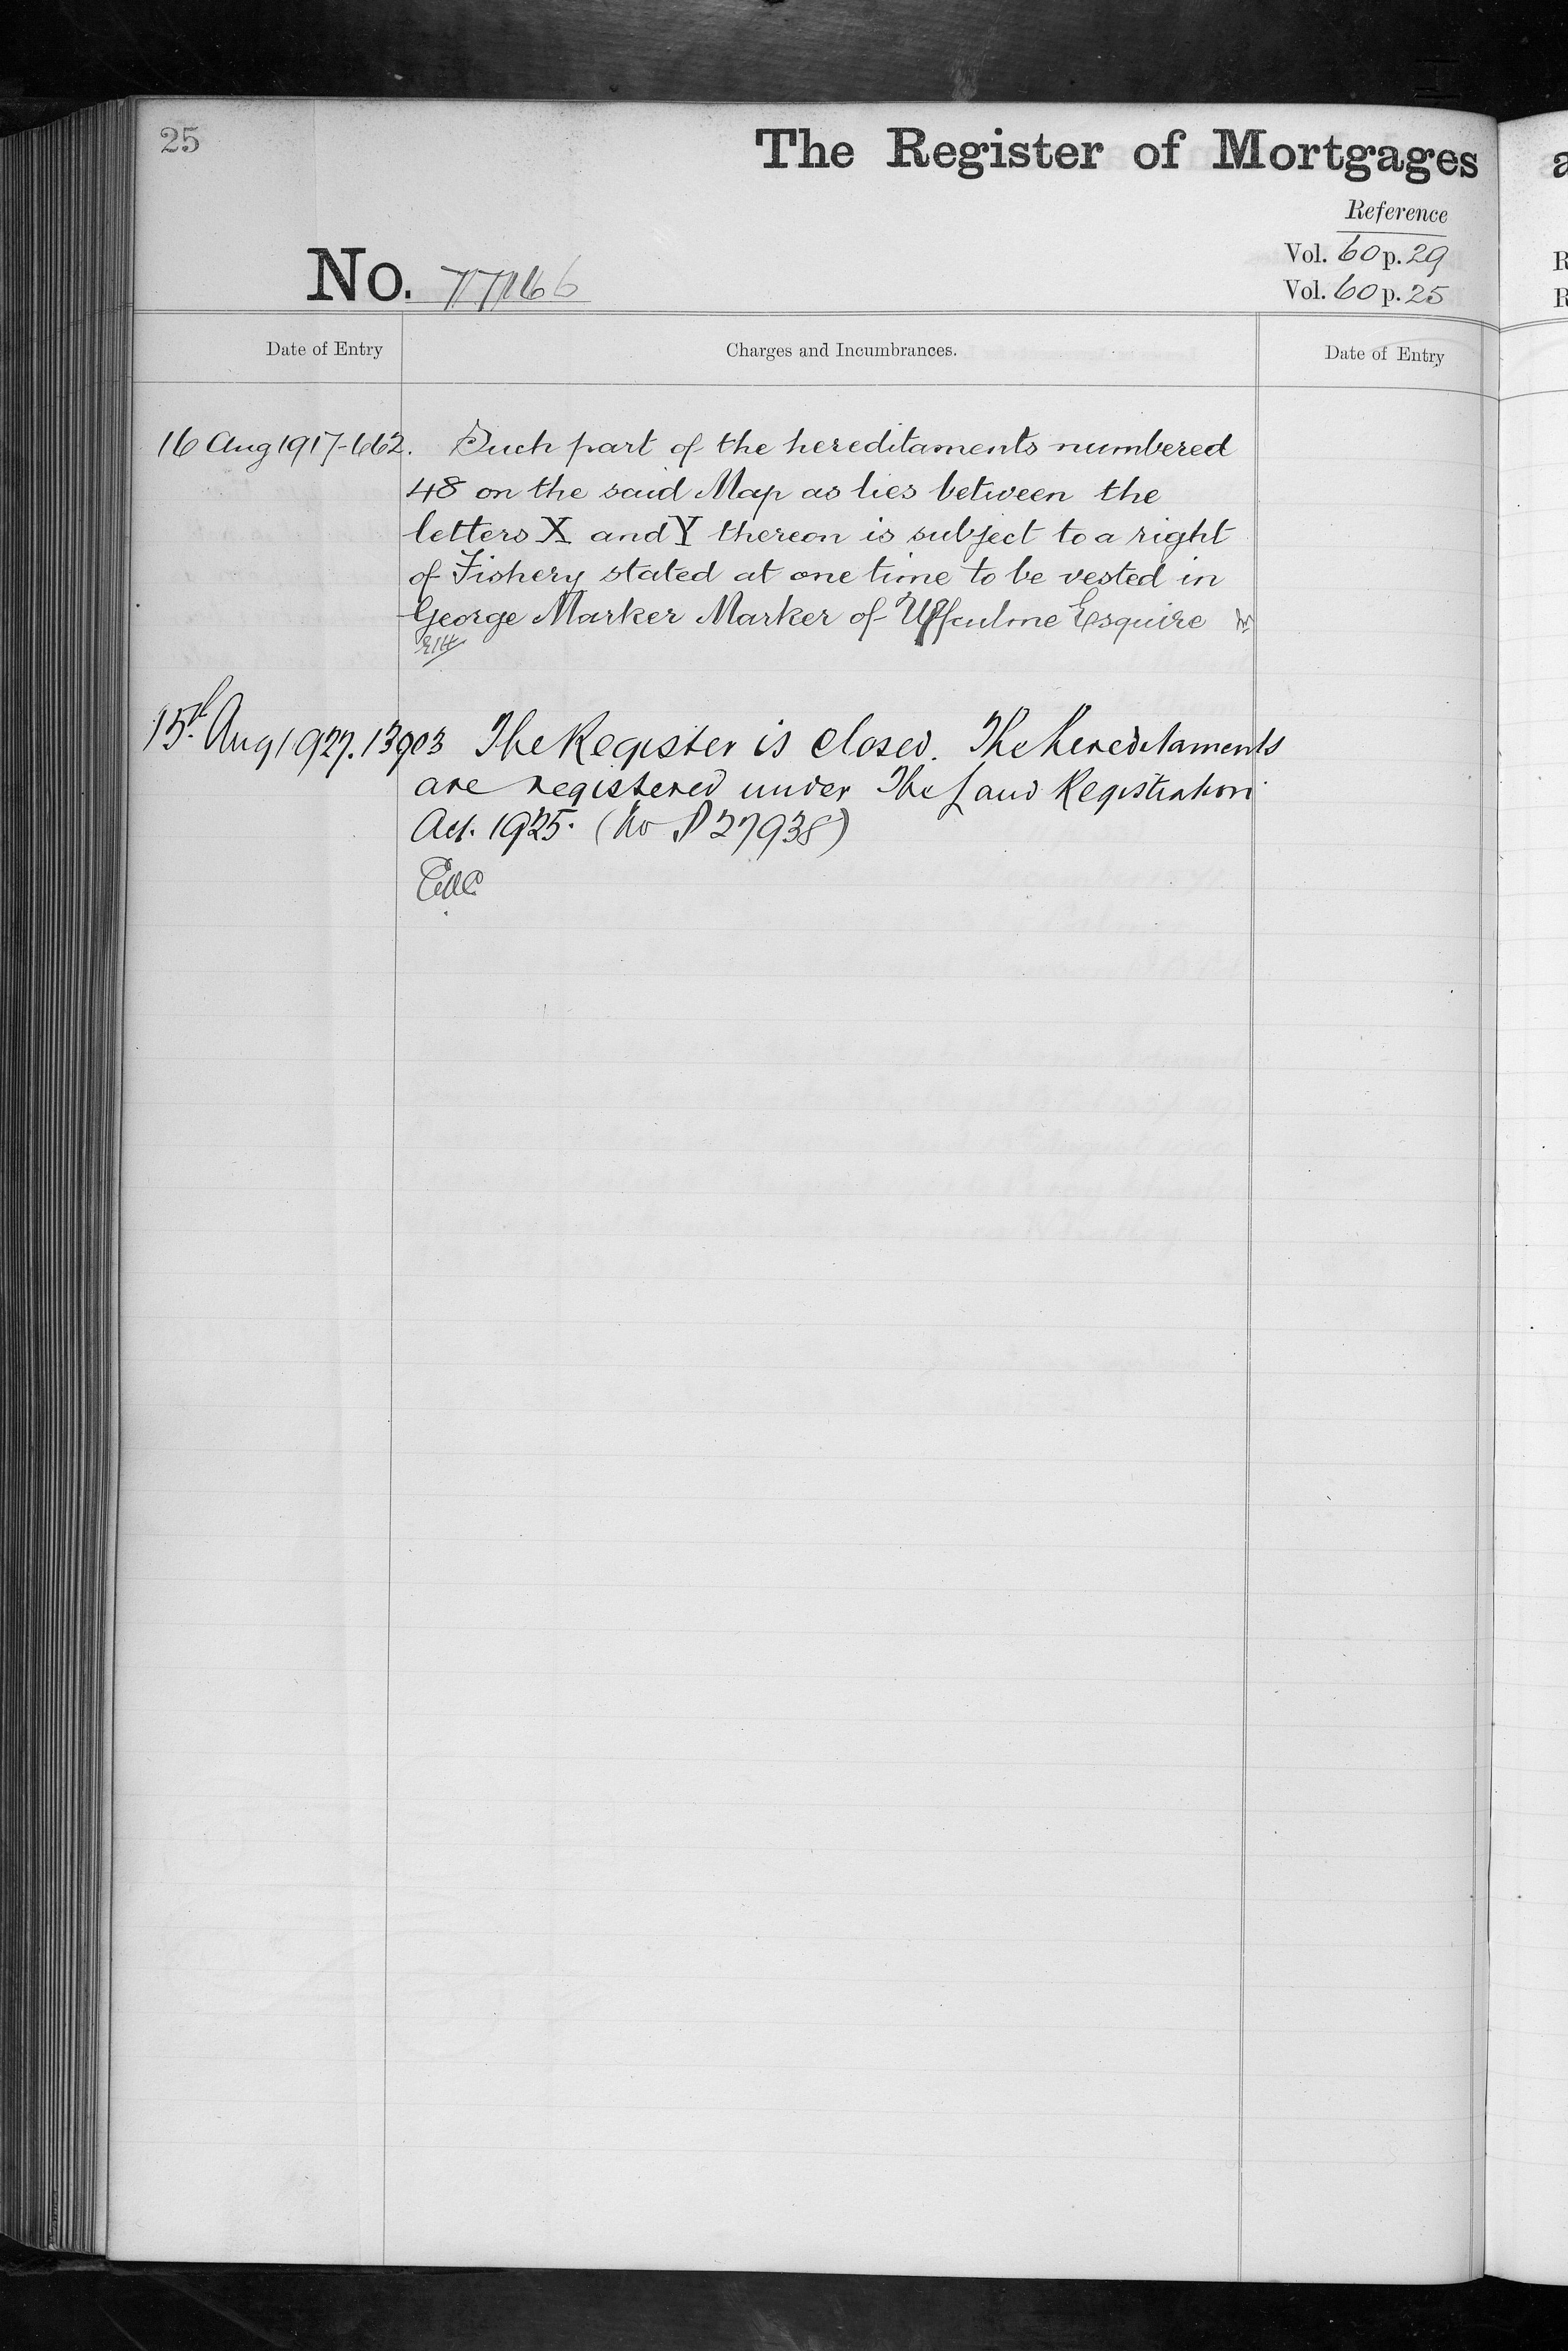 25
The Register of Mortgages
Reference
Vol. 60 p. 29
Vol. 60 p. 25
No.
Date of Entry
Charges and Incumbrances.
Date of Entry
16 Aug 1917-662. Such part of the hereditaments numbered
48 on the said Map as lies between the
letters X and Y thereon is subject to a right
of Fishery stated at one time to be vested in
George Marker Marker of Uffculme Esquire
15th Aug 1927. 13903 The Register is closed. The hereditaments
are registered under The Land Registration
Act. 1925. (No P 27938)